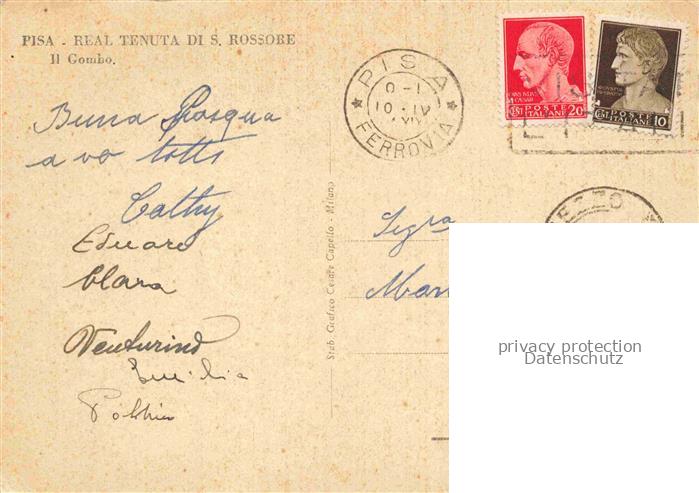 PISA - REAL TENUTA DI S. ROSSORE
Il Gombo.
PISA
FERROVIA
POSTE
ITALIANE 20
CESⁱ
POSTE
ITALIANE 10
CESⁱ
Buona Pasqua
a voi tutti
Cathy
Edoardo
Clara
Venturino
Emilia
Sigra
Mar
Stab. Grafico Cesare Capello - Milano
privacy protection
Datenschutz